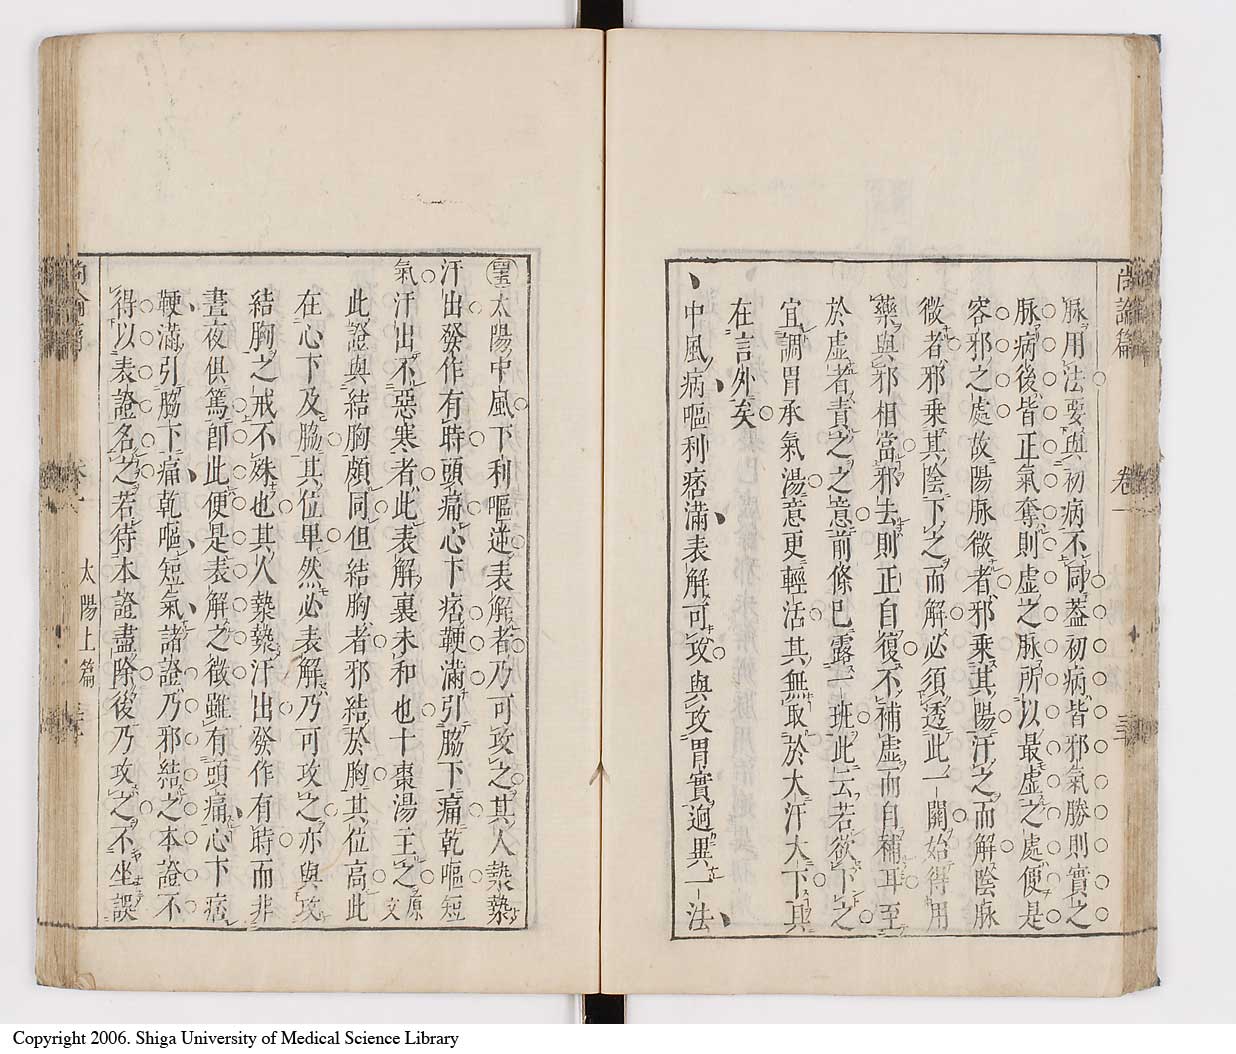 尚論篇
卷一
脉用法要與初病不同葢初病皆邪氣勝則實之
脉病後皆正氣奪則虛之脉所以最虛之處便是
容邪之處故陽脉微者邪乘其陽汗之而解陰脉
微者邪乘其陰下之而解必須透此一關始得用
藥與邪相當邪去則正自復不補虛而自補耳至
於虛者責之之意前條已露一斑此云若欲下之
宜調胃承氣湯意更輕活其無取於大汗大下具
在言外矣
中風病嘔利痞滿表解可攻與攻胃實迥異一法
太陽中風下利嘔逆表解者乃可攻之其人漐漐
汗出發作有時頭痛心下痞鞕滿引脇下痛乾嘔短
氣汗出不惡寒者此表解裏未和也十棗湯主之原文
此證與結胸頗同但結胸者邪結於胸其位高此
在心下及脇其位卑然必表解乃可攻之亦與攻
結胸之戒不殊也其人漐漐汗出發作有時而非
晝夜俱篤即此便是表解之徵雖有頭痛心下痞
鞕滿引脇下痛乾嘔短氣諸證乃邪結之本證不
得以表證名之若待本證盡除後乃攻之不坐誤
太陽上篇